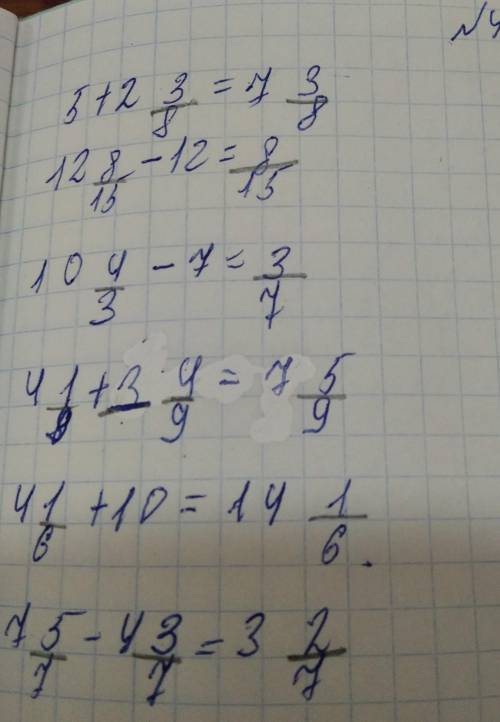 №4
5+2 3/8 = 7 3/8
12 8/15 - 12 = 8/15
10 4/3 - 7 = 3/7
4 1/9 + 3 4/9 = 7 5/9
4 1/6 + 10 = 14 1/6.
7 5/7 - 4 3/7 = 3 2/7